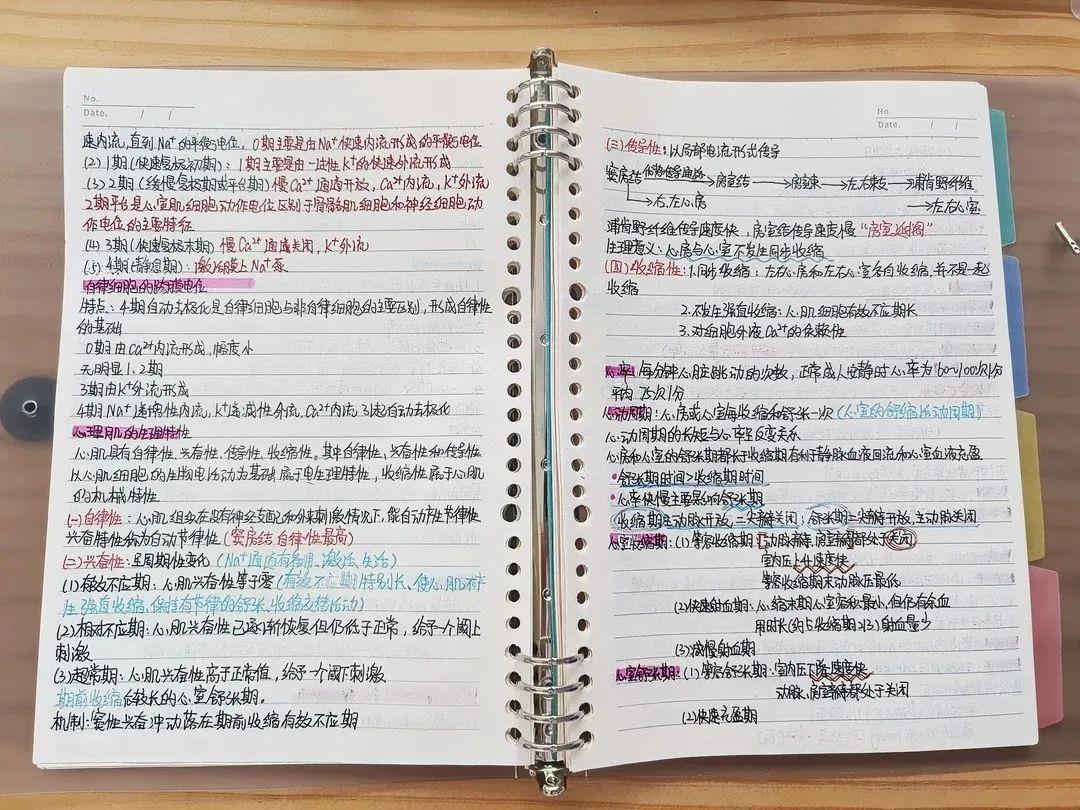 No.
Date. / /
速内流,直到Na⁺的平衡电位。0期主要是由Na⁺快速内流形成的平衡电位
(2) 1期(快速复极初期):1期主要是由一过性K⁺的快速外流形成
(3) 2期(缓慢复极期或平台期)慢Ca²⁺通道开放,Ca²⁺内流,K⁺外流
2期平台是心室肌细胞动作电位区别于骨骼肌细胞和神经细胞动
作电位的主要特征
(4) 3期(快速复极末期)慢Ca²⁺通道关闭,K⁺外流
(5) 4期(静息期):激活膜上Na⁺泵
自律细胞的跨膜电位
特点:4期自动去极化是自律细胞与非自律细胞的主要区别,形成自律性
的基础
0期由Ca²⁺内流形成,幅度小
无明显1、2期
3期由K⁺外流形成
4期Na⁺递增性内流,K⁺递减性外流,Ca²⁺内流引起自动去极化
心理肌的生理特性
心肌具有自律性、兴奋性、传导性、收缩性。其中自律性、兴奋性和传导性
以心肌细胞的生物电活动为基础,属于电生理特性,收缩性属于心肌
的机械特性
(一)自律性:心肌组织在没有神经支配和外来刺激情况下,能自动产生节律性
兴奋特性称为自动节律性(窦房结自律性最高)
(二)兴奋性:呈周期性变化(Na⁺通道有备用、激活、失活)
(1)有效不应期:心肌兴奋性等于零(有效不应期特别长,使心肌不产
生强直收缩,保持有节律的舒张、收缩交替活动)
(2)相对不应期:心肌兴奋性已逐渐恢复但仍低于正常,给予一个阈上
刺激
(3)超常期:心肌兴奋性高于正常值,给予一个阈下刺激
期前收缩:较长的心室舒张期。
机制:窦性兴奋冲动落在期前收缩有效不应期
No.
Date. / /
(三)传导性:以局部电流形式传导
窦房结 优势传导通路→房室结→房室束→左右束支→浦肯野纤维
→左右心房 →左右心室
浦肯野纤维传导速度快,房室结传导速度慢“房室延搁”
生理意义:心房与心室不发生同步收缩
(四)收缩性:1.同步收缩:左右心房和左右心室各自收缩,并不是一起
收缩
2.不发生强直收缩:心肌细胞有效不应期长
3.对细胞外液Ca²⁺的依赖性
心率:每分钟心脏跳动的次数,正常成人安静时心率为60~100次/分
平均75次/分
心动周期:心房或心室每收缩和舒张一次(心室的舒缩活动周期)
心动周期的长短与心率呈反变关系
心房和心室的舒张期都长于收缩期有利于静脉血液回流和心室血液充盈
·舒张期时间>收缩期时间
·心率快慢主要影响舒张期
收缩期主动脉开放,二尖瓣关闭;舒张期二尖瓣开放,主动脉关闭
心室收缩期:(1)等容收缩期:动脉瓣、房室瓣处于关闭
室内压上升速度快
等容收缩期末动脉压最低
(2)快速射血期:心缩末期心室容积最小,但仍有余血
用时长(约占收缩期2/3)射血量少
(3)减慢射血期
心室舒张期:(1)等容舒张期:室内压下降速度快
动脉、房室瓣都处于关闭
(2)快速充盈期